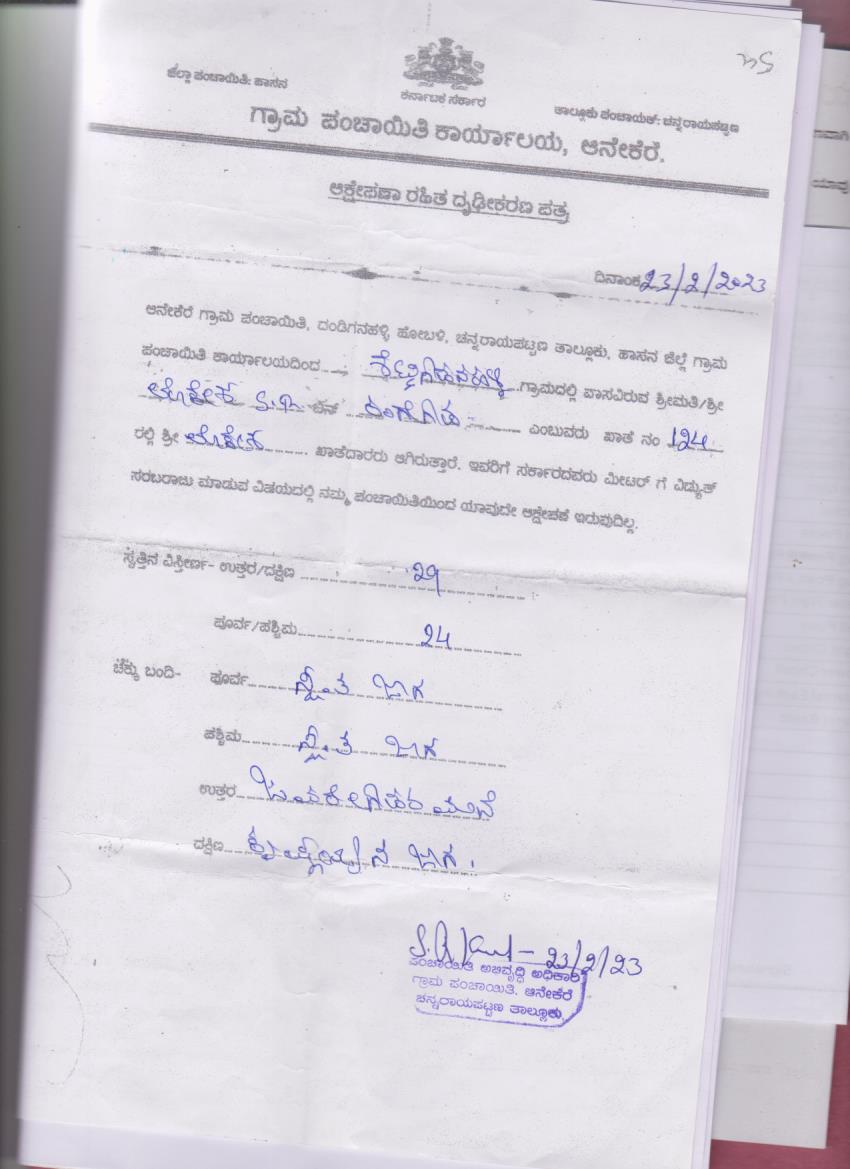 ಜಿಲ್ಲಾ ಪಂಚಾಯಿತಿ: ಹಾಸನ
ಕರ್ನಾಟಕ ಸರ್ಕಾರ
ತಾಲ್ಲೂಕು ಪಂಚಾಯತ್: ಚನ್ನರಾಯಪಟ್ಟಣ
ಗ್ರಾಮ ಪಂಚಾಯಿತಿ ಕಾರ್ಯಾಲಯ, ಆನೇಕೆರೆ.
ಆಕ್ಷೇಪಣಾ ರಹಿತ ದೃಢೀಕರಣ ಪತ್ರ
ದಿನಾಂಕ 23/2/2023
ಆನೇಕೆರೆ ಗ್ರಾಮ ಪಂಚಾಯಿತಿ, ದಂಡಿಗನಹಳ್ಳಿ ಹೋಬಳಿ, ಚನ್ನರಾಯಪಟ್ಟಣ ತಾಲ್ಲೂಕು, ಹಾಸನ ಜಿಲ್ಲೆ ಗ್ರಾಮ
ಪಂಚಾಯಿತಿ ಕಾರ್ಯಾಲಯದಿಂದ ಶೆಟ್ಟಿಗೌಡನಹಳ್ಳಿ ಗ್ರಾಮದಲ್ಲಿ ವಾಸವಿರುವ ಶ್ರೀಮತಿ/ಶ್ರೀ
ಲೋಕೇಶ S.R ಬಿನ್ ರಂಗೇಗೌಡ ಎಂಬುವರು ಖಾತೆ ನಂ 124
ರಲ್ಲಿ ಶ್ರೀ ಲೋಕೇಶ ಖಾತೆದಾರರು ಆಗಿರುತ್ತಾರೆ. ಇವರಿಗೆ ಸರ್ಕಾರದವರು ಮೀಟರ್ ಗೆ ವಿದ್ಯುತ್
ಸರಬರಾಜು ಮಾಡುವ ವಿಷಯದಲ್ಲಿ ನಮ್ಮ ಪಂಚಾಯಿತಿಯಿಂದ ಯಾವುದೇ ಆಕ್ಷೇಪಣೆ ಇರುವುದಿಲ್ಲ.
ಸ್ವತ್ತಿನ ವಿಸ್ತೀರ್ಣ- ಉತ್ತರ/ದಕ್ಷಿಣ 29
ಪೂರ್ವ/ಪಶ್ಚಿಮ 24
ಚೆಕ್ಕು ಬಂದಿ- ಪೂರ್ವ ಸ್ವಂತ ಜಾಗ
ಪಶ್ಚಿಮ ಸ್ವಂತ ಜಾಗ
ಉತ್ತರ ಜವರೇಗೌಡರ ಮನೆ
ದಕ್ಷಿಣ ಕೃಷ್ಣಯ್ಯನ ಜಾಗ.
23/2/23
ಪಂಚಾಯಿತಿ ಅಭಿವೃದ್ಧಿ ಅಧಿಕಾರಿ
ಗ್ರಾಮ ಪಂಚಾಯಿತಿ. ಆನೇಕೆರೆ
ಚನ್ನರಾಯಪಟ್ಟಣ ತಾಲ್ಲೂಕು.